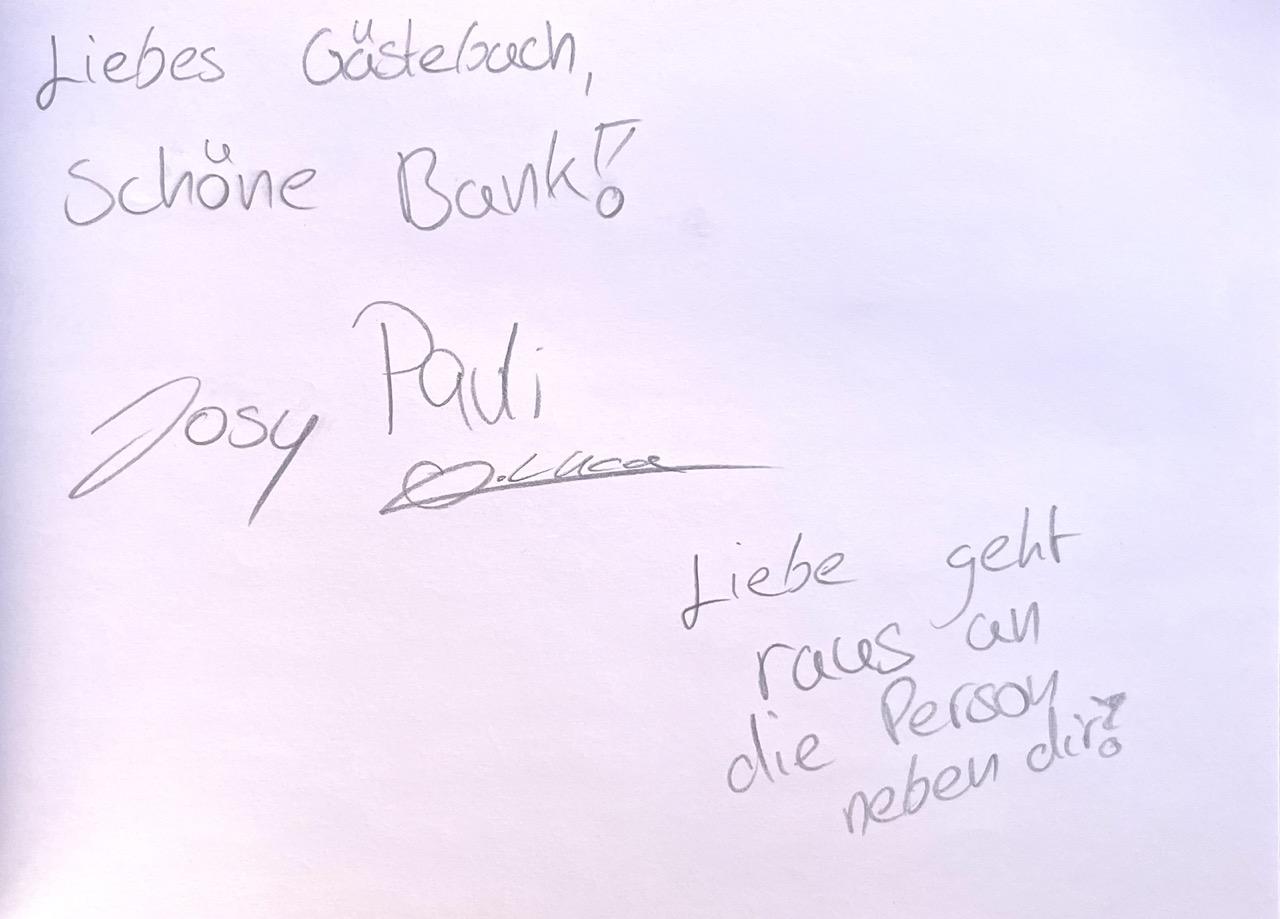 Liebes Gästebuch,
Schöne Bank!
Pauli
Josy
Luca
Liebe geht
raus an
die Person
neben dir!